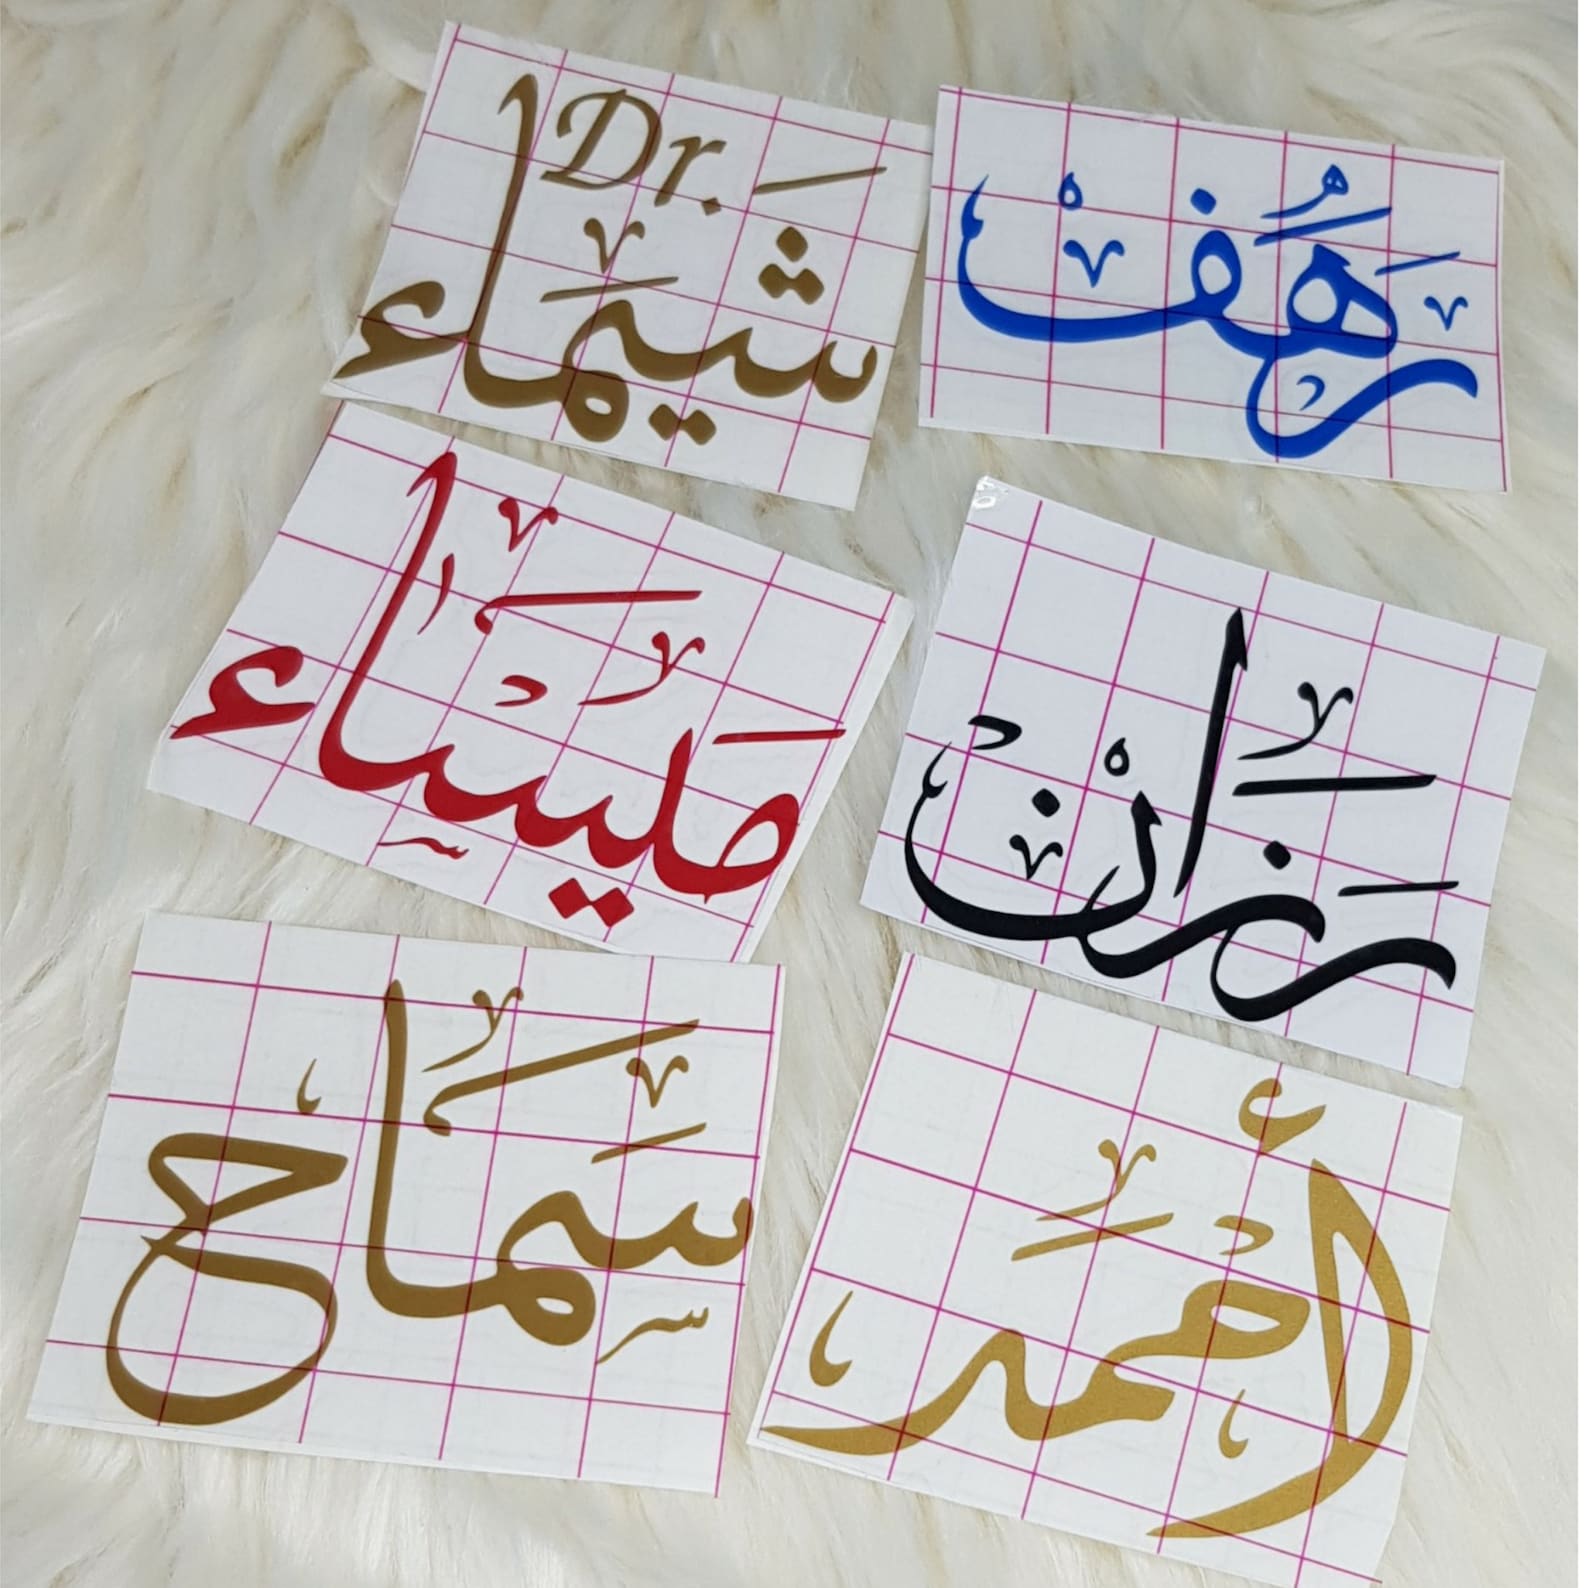 Dr.
شَيمَاء
رَهَفْ
مَيسَاء
رَزَانْ
سَمَاح
أحمَد